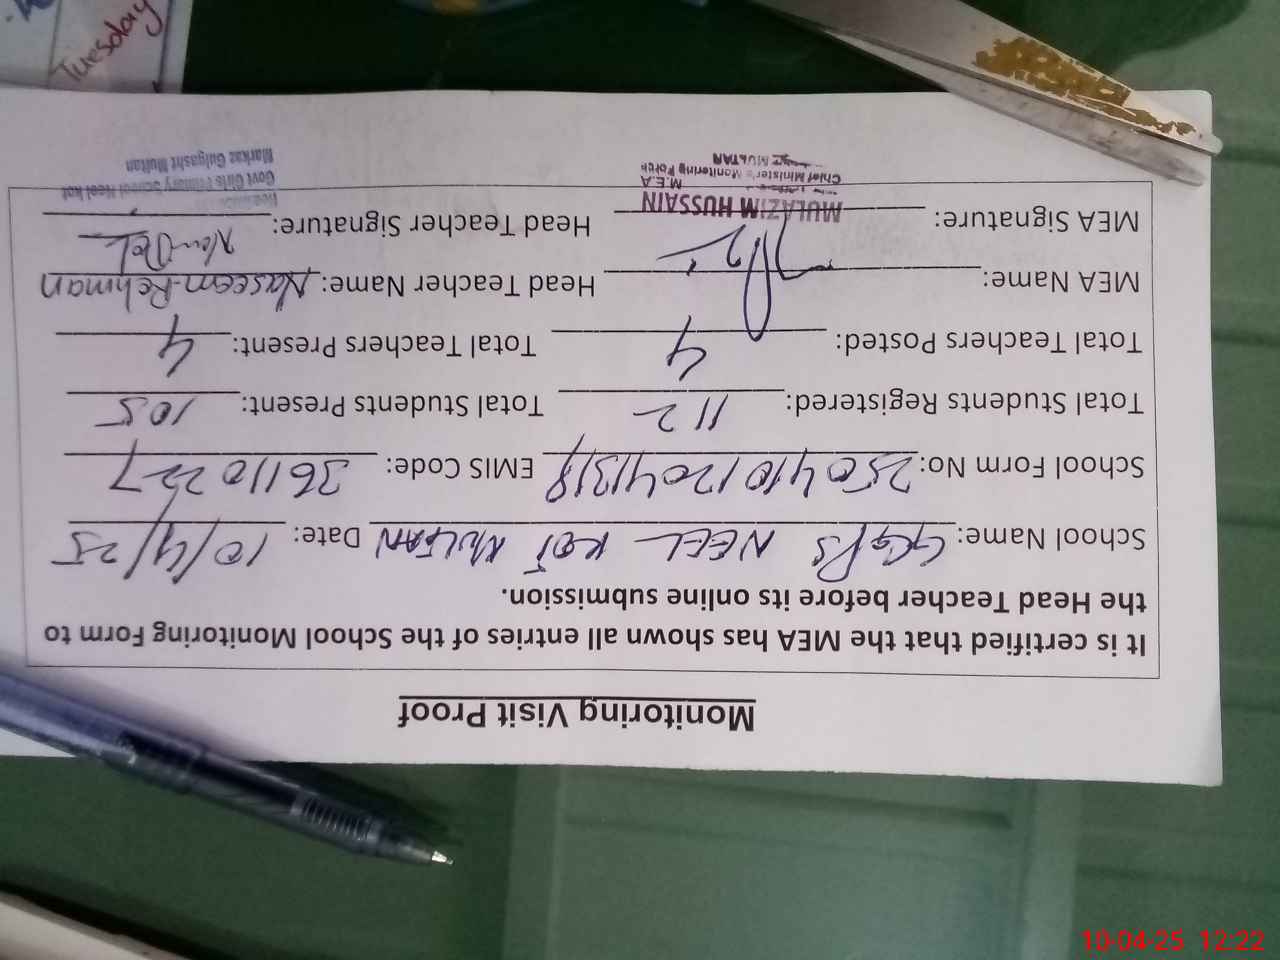 Monitoring Visit Proof
It is certified that the MEA has shown all entries of the School Monitoring Form to
the Head Teacher before its online submission.
School Name: GGPS NEEL KOT MULTAN Date: 10/4/25
School Form No: EMIS Code: 36110227
Total Students Registered: 112 Total Students Present: 105
Total Teachers Posted: 4 Total Teachers Present: 4
MEA Name: Head Teacher Name: Naseem Rehman
MEA Signature: Head Teacher Signature:
MULAZIM HUSSAIN
M.E.A
Chief Minister's Monitoring Force
MULTAN
Govt Girls Primary School Neel kot
Markaz Gulgasht Multan
Tuesday
10-04-25 12:22